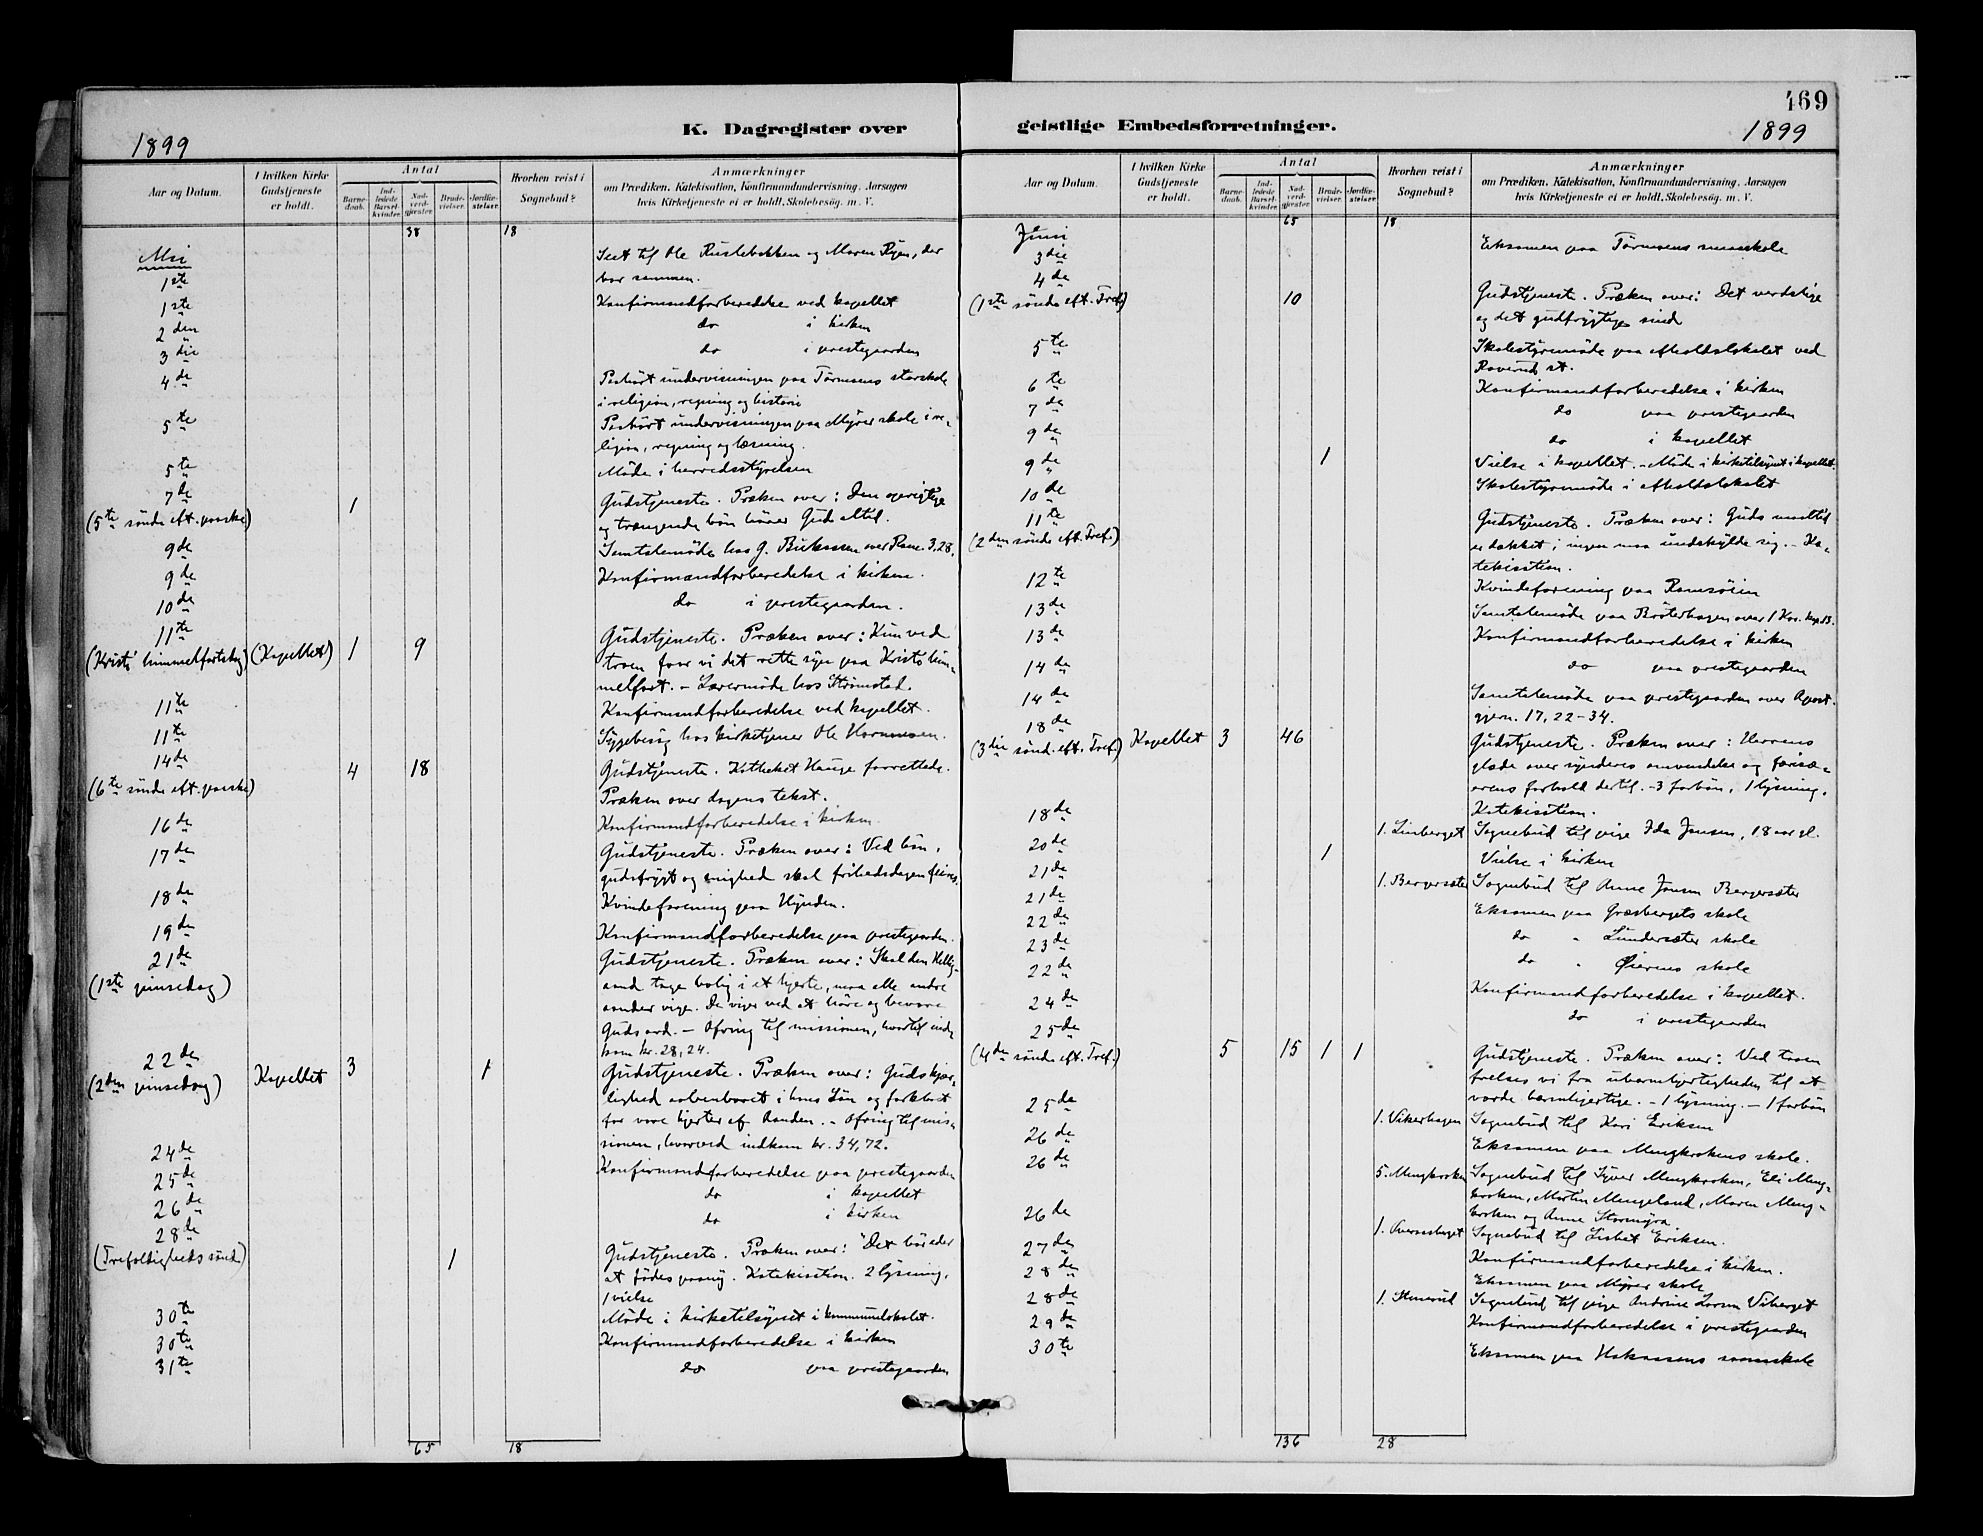 469
K. Dagregister over geistlige Embedsforretninger.
1899
1899
Aar og Datum.
I hvilken Kirke Gudstjeneste er holdt.
Antal
Barnedaab.
Indledede Barselkvinder.
Nadverdgjester.
Brudevielser.
Jordfæstelser.
Hvorhen reist i Sognebud?
Anmærkninger
om Prædiken, Katekisation, Konfirmandundervisning, Aarsagen
hvis Kirketjeneste ei er holdt, Skolebesøg. m. V.
38 18
Mai
1ste Seet til Ole Rustebakken og Maren Ryen, der
var sammen.
1ste Konfirmandforberedelse ved kapellet
2den do i kirken
3die do i prestegaarden
4de Paahørt undervisningen paa Tørmoens storskole
i religion, regning og historie
5te Paahørt undervisningen paa Myrer skole i re-
ligion, regning og læsning.
5te Møde i herredsstyrelsen
7de
(5te sønd. eft. paaske) 1 Gudstjeneste. Præken over: Den oprigtige
og trængende bøn hører Gud altid.
9de Samtalemøde hos G. over Rom. 3,28.
9de Konfirmandforberedelse i kirken.
10de do i prestegaarden.
11te
(Kristi himmelfartsdag) (Kapellet) 1 9 Gudstjeneste. Præken over: Kun ved
troen faar vi det rette syn paa Kristi him-
melfart. – Lærermøde hos Strømstad.
11te Konfirmandforberedelse ved kapellet.
11te Sygebesøg hos kirketjener Ole
14de
(6te sønd. eft. paaske) 4 18 Gudstjeneste. Katheket Hauge forrettede.
Præken over dagens tekst.
16de Konfirmandforberedelse i kirken.
17de Gudstjeneste. Præken over: Ved bøn,
gudsfrygt og enighed skal frihedsdagen feires.
18de Kvindeforening paa Hynden.
19de Konfirmandforberedelse paa prestegaarden.
21de
(1ste pinsedag) Gudstjeneste. Præken over: Skal den Hellig-
aand tage bolig i et hjerte, maa alle andre
aander vige. De viger ved at høre og bevare
Guds ord. – Ofring til missionen, hvortil ind-
kom kr. 28,24.
22de
(2den pinsedag) Kapellet 3 1 Gudstjeneste. Præken over: Guds kjær-
lighed aabenbaret i hans Søn og forklaret
for vore hjerter af Aanden. – Ofring til mis-
sionen, hvorved indkom kr. 34,72.
24de Konfirmandforberedelse paa prestegaarden
25de do i kapellet
26de do i kirken
28de
(Trefoldigheds sønd) 1 Gudstjeneste. Præken over: "Det bør eder
at fødes paany. Katekisation. 2 lysning,
1 vielse
30te Møde i kirketilsynet i kommunelokalet.
30te Konfirmandforberedelse i kirken
31te do paa prestegaarden
65 18
Aar og Datum.
I hvilken Kirke Gudstjeneste er holdt.
Antal
Barnedaab.
Indledede Barselkvinder.
Nadverdgjester.
Brudevielser.
Jordfæstelser.
Hvorhen reist i Sognebud?
Anmærkninger
om Prædiken, Katekisation, Konfirmandundervisning, Aarsagen
hvis Kirketjeneste ei er holdt, Skolebesøg. m. V.
65 18
Juni
3die Eksamen paa Tørmoens smaaskole
4de
(1ste sønd. eft. Tref.) 10 Gudstjeneste. Præken over: Det verdslige
og det gudfrygtige sind
5te Skolestyremøde paa afholdslokalet ved
Roverud st.
6te Konfirmandforberedelse i kirken
7de do paa prestegaarden
9de do i kapellet
9de 1 Vielse i kapellet. – Møde i kirketilsynet i kapellet.
10de Skolestyremøde i afholdslokalet
11te
(2den sønd. eft. Tref.) Gudstjeneste. Præken over: Guds maaltid
er dækket; ingen maa undskylde sig. – Ka-
tekisation.
12te Kvindeforening paa
13de Samtalemøde paa Bråterhagen over 1 Kor. kap. 13.
13de Konfirmandforberedelse i kirken
14de do paa prestegaarden
14de Samtalemøde paa prestegaarden over Apost.
gjern. 17, 22–34.
18de
(3die sønd. eft. Tref.) Kapellet 3 46 Gudstjeneste. Præken over: Herrens
glæde over synderes omvendelse og farisæ-
erens forhold dertil. – 3 forbøn, 1 lysning.
Katekisation.
18de 1. Linberget Sognebud til pige Ida Jansen, 18 aar gl.
20de 1 Vielse i kirken
21de 1. Bergersæter Sognebud til Anne Jansen Bergersæter
21de Eksamen paa Græsbergets skole
22de do " Lundersæter skole
23de do " Øierens skole
22de Konfirmandforberedelse i kapellet.
24de do i prestegaarden
25de
(4de sønd. eft. Tref.) 5 15 1 1 Gudstjeneste. Præken over: Ved troen
frelses vi fra ubarmhjertigheden til at
vorde barmhjertige. – 1 lysning. – 1 forbøn
25de 1. Vikerhagen Sognebud til Kari Eriksen
26de Eksamen paa Mengkrokens skole.
26de 5. Mengkroken Sognebud til Syver Mengkroken, Eli Meng-
kroken, Martin Mengeland, Maren Meng-
kroken og Anne Stormyra.
26de 1. Sognebud til Lisbet Eriksen.
27de Konfirmandforberedelse i kirken.
28de Eksamen paa Myrer skole
28de 1. Stenerud Sognebud til pige Andrine Larsen Viberget
29de Konfirmandforberedelse i prestegaarden
30te Eksamen paa Hokaasens smaaskole
136 28